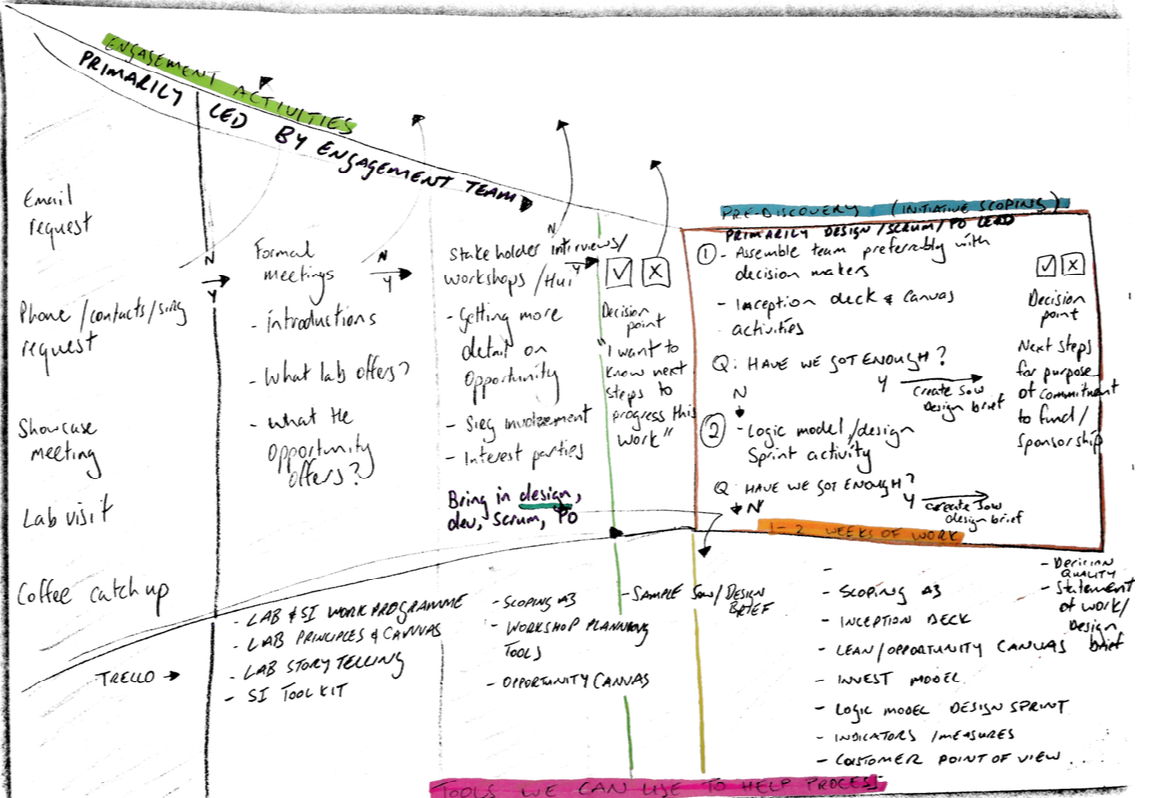 ENGAGEMENT ACTIVITIES
PRIMARILY LED BY ENGAGEMENT TEAM
Email
request
Phone / contacts / sieg
request
Showcase
meeting
Lab visit
Coffee catch up
TRELLO →
N
Y
Formal
meetings
- introductions
- What lab offers?
- what the
opportunity
offers?
N
Y
Stakeholder interviews/
workshops / Hui
- Getting more
detail on
opportunity
- Sieg involvement
- Interest parties
Bring in design,
dev, scrum, PO
N
Y
Decision
point
"I want to
know next
steps to
progress this
work"
PRE-DISCOVERY (INITIATIVE SCOPING)
PRIMARILY DESIGN / SCRUM / PO LEAD
① - Assemble team preferably with
decision makers
- Inception deck & Canvas
activities
Q: HAVE WE GOT ENOUGH?
N
Y
create sow
Design brief
② - Logic model / design
Sprint activity
Q: HAVE WE GOT ENOUGH?
N
Y
create sow
design brief
1-2 WEEKS OF WORK
Decision
point
Next steps
for purpose
of commitment
to fund /
sponsorship
- LAB & SI WORK PROGRAMME
- LAB PRINCIPLES & CANVAS
- LAB STORY TELLING
- SI TOOL KIT
- SCOPING A3
- WORKSHOP PLANNING
TOOLS
- OPPORTUNITY CANVAS
- SAMPLE SOW / DESIGN
BRIEF
- SCOPING A3
- INCEPTION DECK
- LEAN / OPPORTUNITY CANVAS
- INVEST MODEL
- LOGIC MODEL DESIGN SPRINT
- INDICATORS / MEASURES
- CUSTOMER POINT OF VIEW...
- DECISION
QUALITY
- Statement
of work /
Design
brief
TOOLS WE CAN USE TO HELP PROCESS